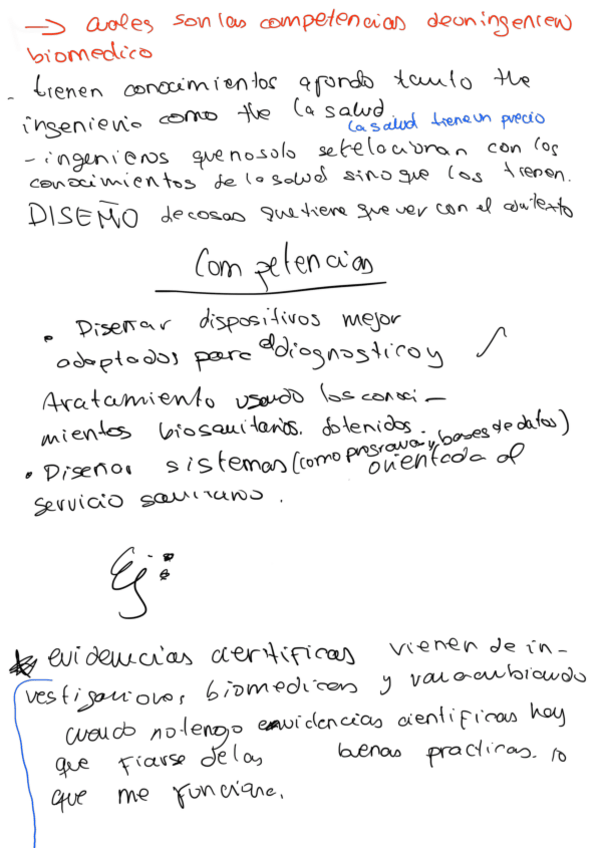 → cuales son las competencias de un ingeniero
biomedico
- tienen conocimientos a fondo tanto the
ingenieria como the la salud
la salud tiene un precio
- ingenieros que no solo se relacionan con los
conocimientos de la salud sino que los tienen.
DISEÑO de cosas que tiene que ver con el
Competencias
• Diseñar dispositivos mejor
adaptados para el diagnostico y
tratamiento usando los conoci-
mientos biosanitarios. obtenidos.
• Diseñar sistemas (como programa y bases de datos)
orientada al
servicio sanitario.
Ej:
evidencias cientificas vienen de in-
vestigaciones biomedicas y van cambiando
cuando no tengo evidencias cientificas hay
que fiarse de las buenas practicas. lo
que me funciona.